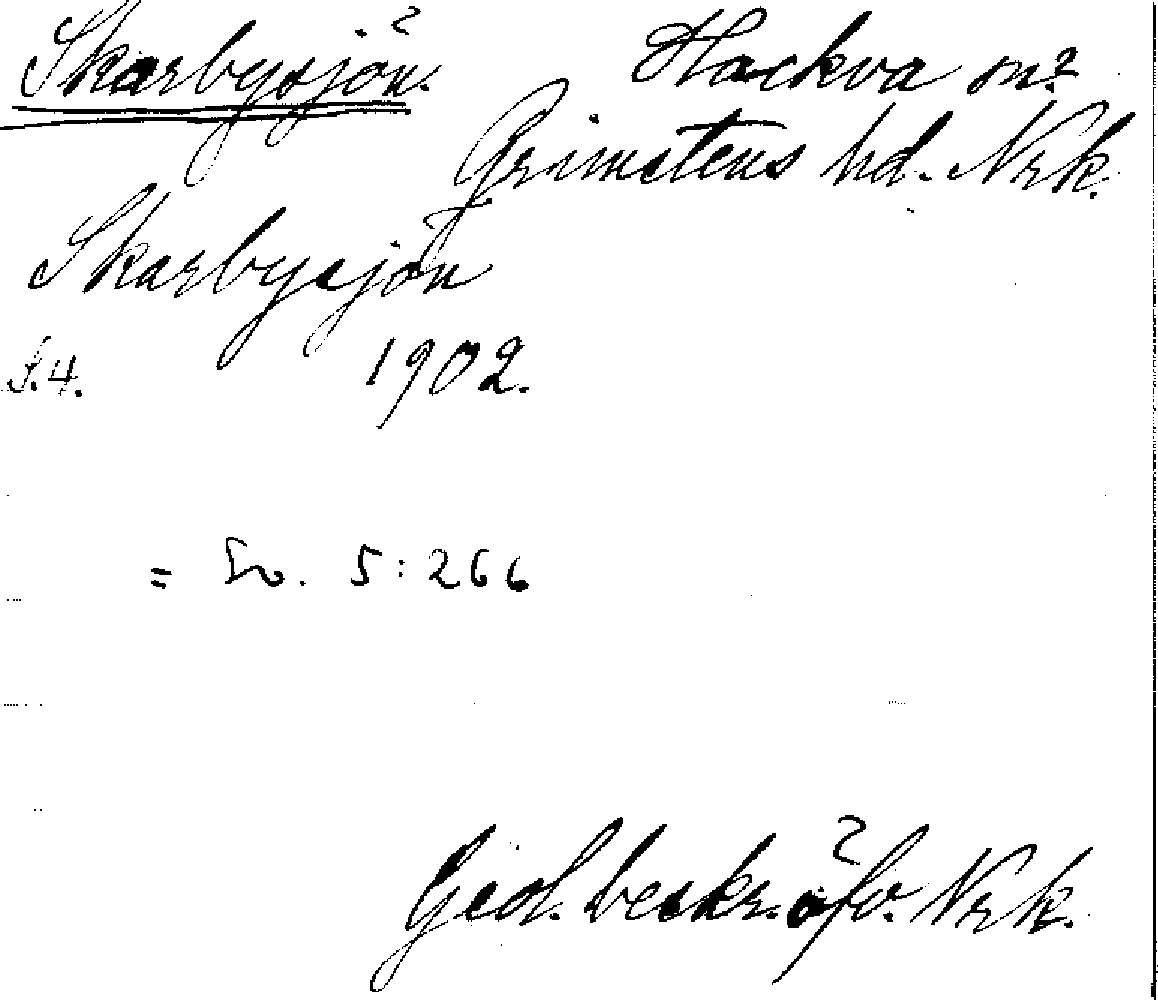 Skarbysjön. Hackva sn?
Grimstens hd. Nrk.
Skarbysjön
S.4. 1902.
= Sv. 5:266
Geol. beskr. öfv. Nrk.